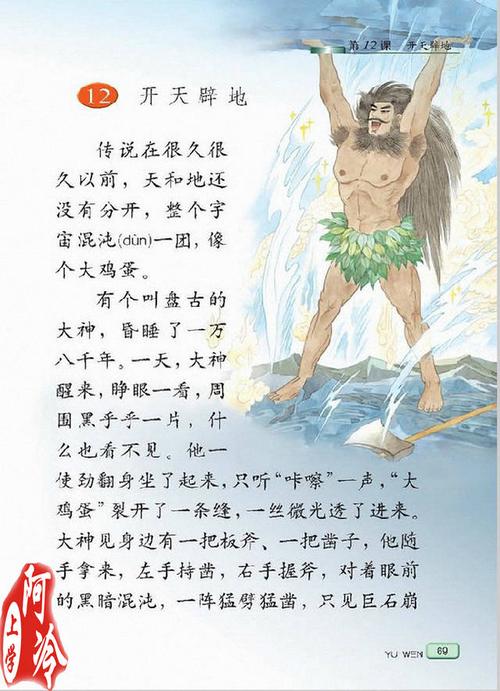 第12课 开天辟地
12 开天辟地
传说在很久很
久以前，天和地还
没有分开，整个宇
宙混沌(dùn)一团，像
个大鸡蛋。
有个叫盘古的
大神，昏睡了一万
八千年。一天，大神
醒来，睁眼一看，周
围黑乎乎一片，什
么也看不见。他一
使劲翻身坐了起来，只听“咔嚓”一声，“大
鸡蛋”裂开了一条缝，一丝微光透了进来。
大神见身边有一把板斧、一把凿子，他随
手拿来，左手持凿，右手握斧，对着眼前
的黑暗混沌，一阵猛劈猛凿，只见巨石崩
YU WEN 69
阿冷
上学